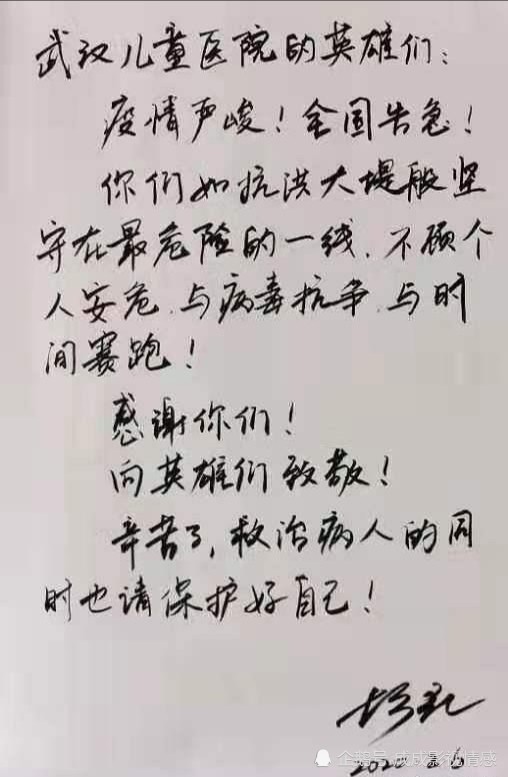 武汉儿童医院的英雄们：
疫情严峻！全国告急！
你们如抗洪大堤般坚
守在最危险的一线，不顾个
人安危，与病毒抗争，与时
间赛跑！
感谢你们！
向英雄们致敬！
辛苦了，救治病人的同
时也请保护好自己！
企鹅号 成成影视情感